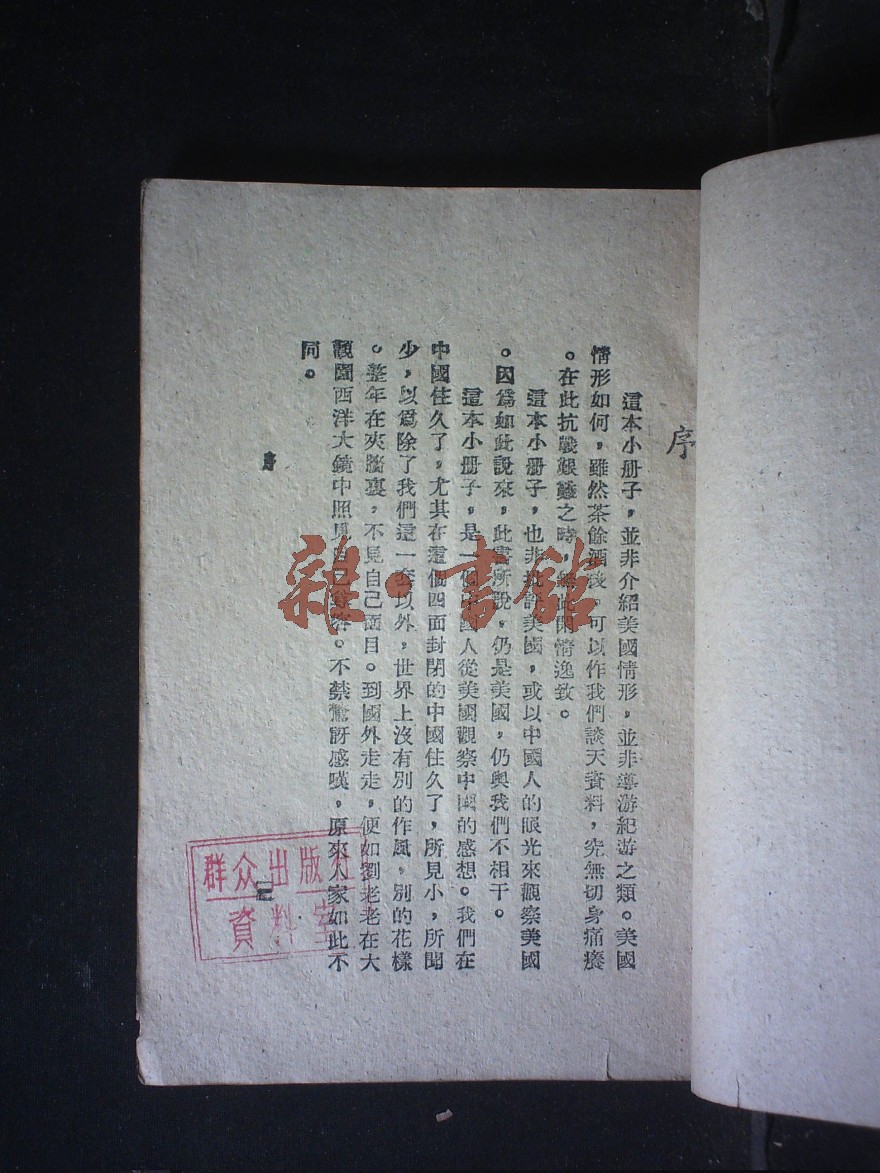 序
這本小册子，並非介紹美國情形，並非導游紀游之類。美國
情形如何，雖然茶餘酒後，可以作我們談天資料，究無切身痛癢
。在此抗戰艱難之時，無此閑情逸致。
這本小册子，也非批評美國，或以中國人的眼光來觀察美國
。因爲如此說來，此書所說，仍是美國，仍與我們不相干。
這本小册子，是一個中國人從美國觀察中國的感想。我們在
中國住久了，尤其在這個四面封閉的中國住久了，所見小，所聞
少，以爲除了我們這一套以外，世界上沒有別的作風，別的花樣
。整年在夾牆裏，不見自己面目。到國外走走，便如劉老老在大
觀園西洋大鏡中照見自己。不禁驚訝感嘆，原來人家如此不
同。
序
一
群众出版社
資料室
雜·書館